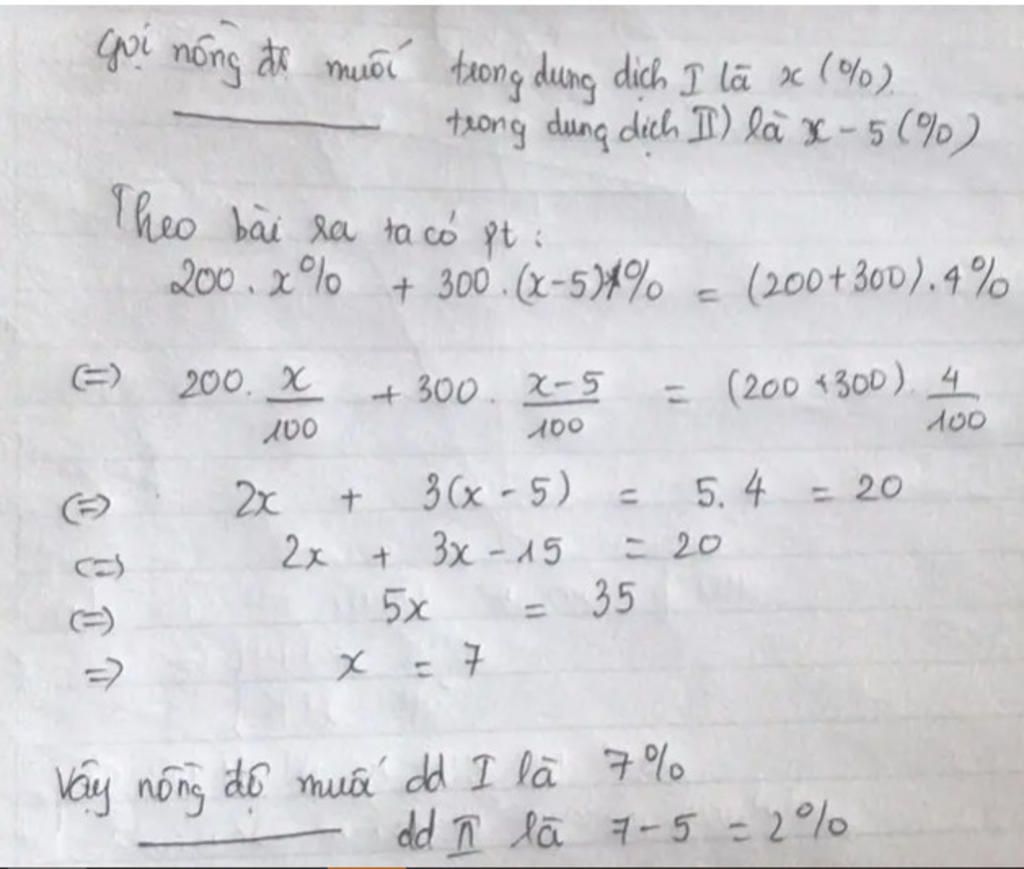 Gọi nồng độ muối trong dung dịch I là x (%)
trong dung dịch II) là x - 5 (%)
Theo bài ra ta có pt :
200 . x% + 300 . (x-5)% = (200+300) . 4%
(=) 200 . x/100 + 300 . x-5/100 = (200+300) . 4/100
(=) 2x + 3(x - 5) = 5. 4 = 20
(=) 2x + 3x - 15 = 20
(=) 5x = 35
=> x = 7
Vậy nồng độ muối dd I là 7%
dd II là 7-5 = 2%